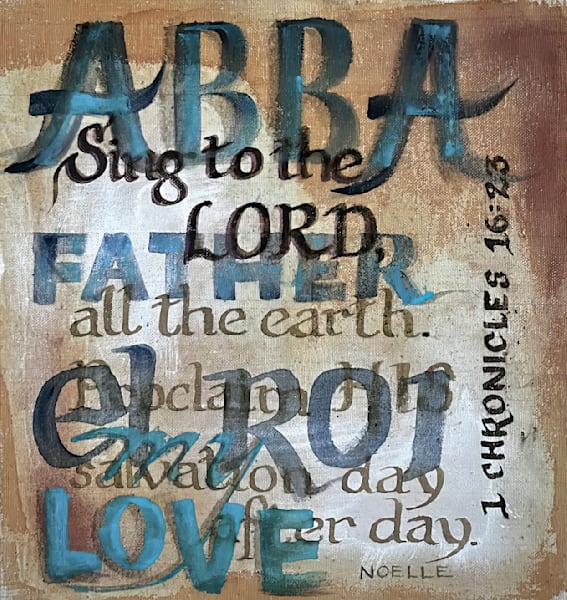 ABBA
Sing to the
LORD,
FATHER
all the earth.
el ROI
Proclaim HIS
my
salvation day
LOVE
after day.
1 CHRONICLES 16:23
NOELLE